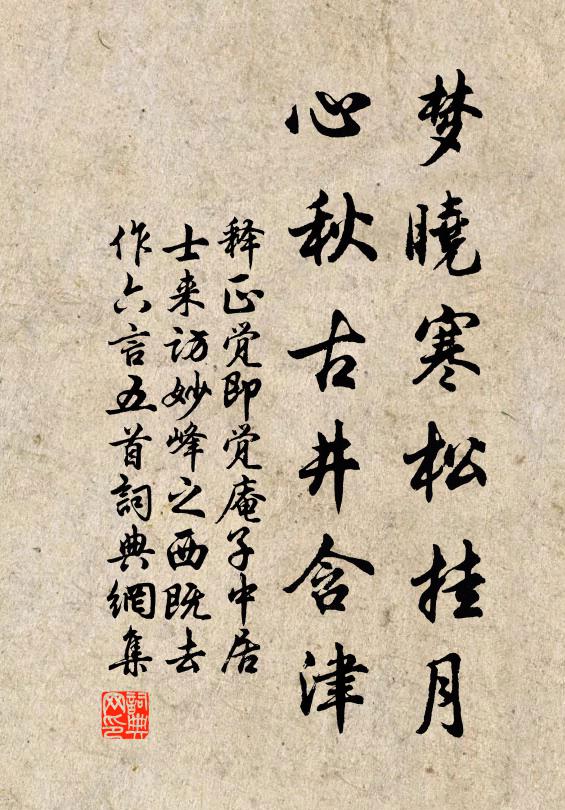 梦曉寒松挂月
心秋古井含津
释正觉即觉庵子中居
士来访妙峰之西既去
作六言五首詞典網集
詞典网印